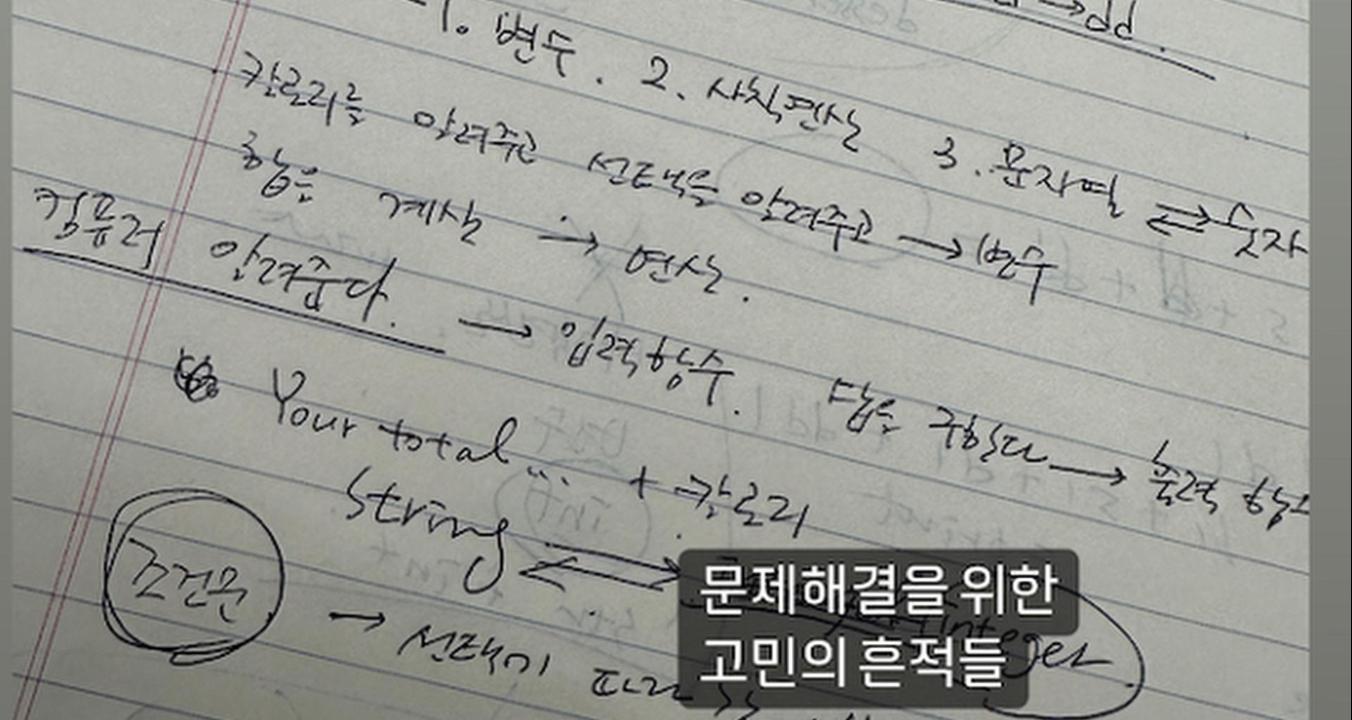 →dd.
1. 변수. 2. 사칙연산 3. 문자열 ⇌ 숫자
칼로리를 알려주고 선택을 알려주고 → 변수
합을 계산 → 연산.
컴퓨터 알려준다. → 입력함수. 답을 구한다 → 출력 함수
Your total... + 칼로리
String ⇌ integer
조건문 → 선택이 따라
문제해결을 위한
고민의 흔적들